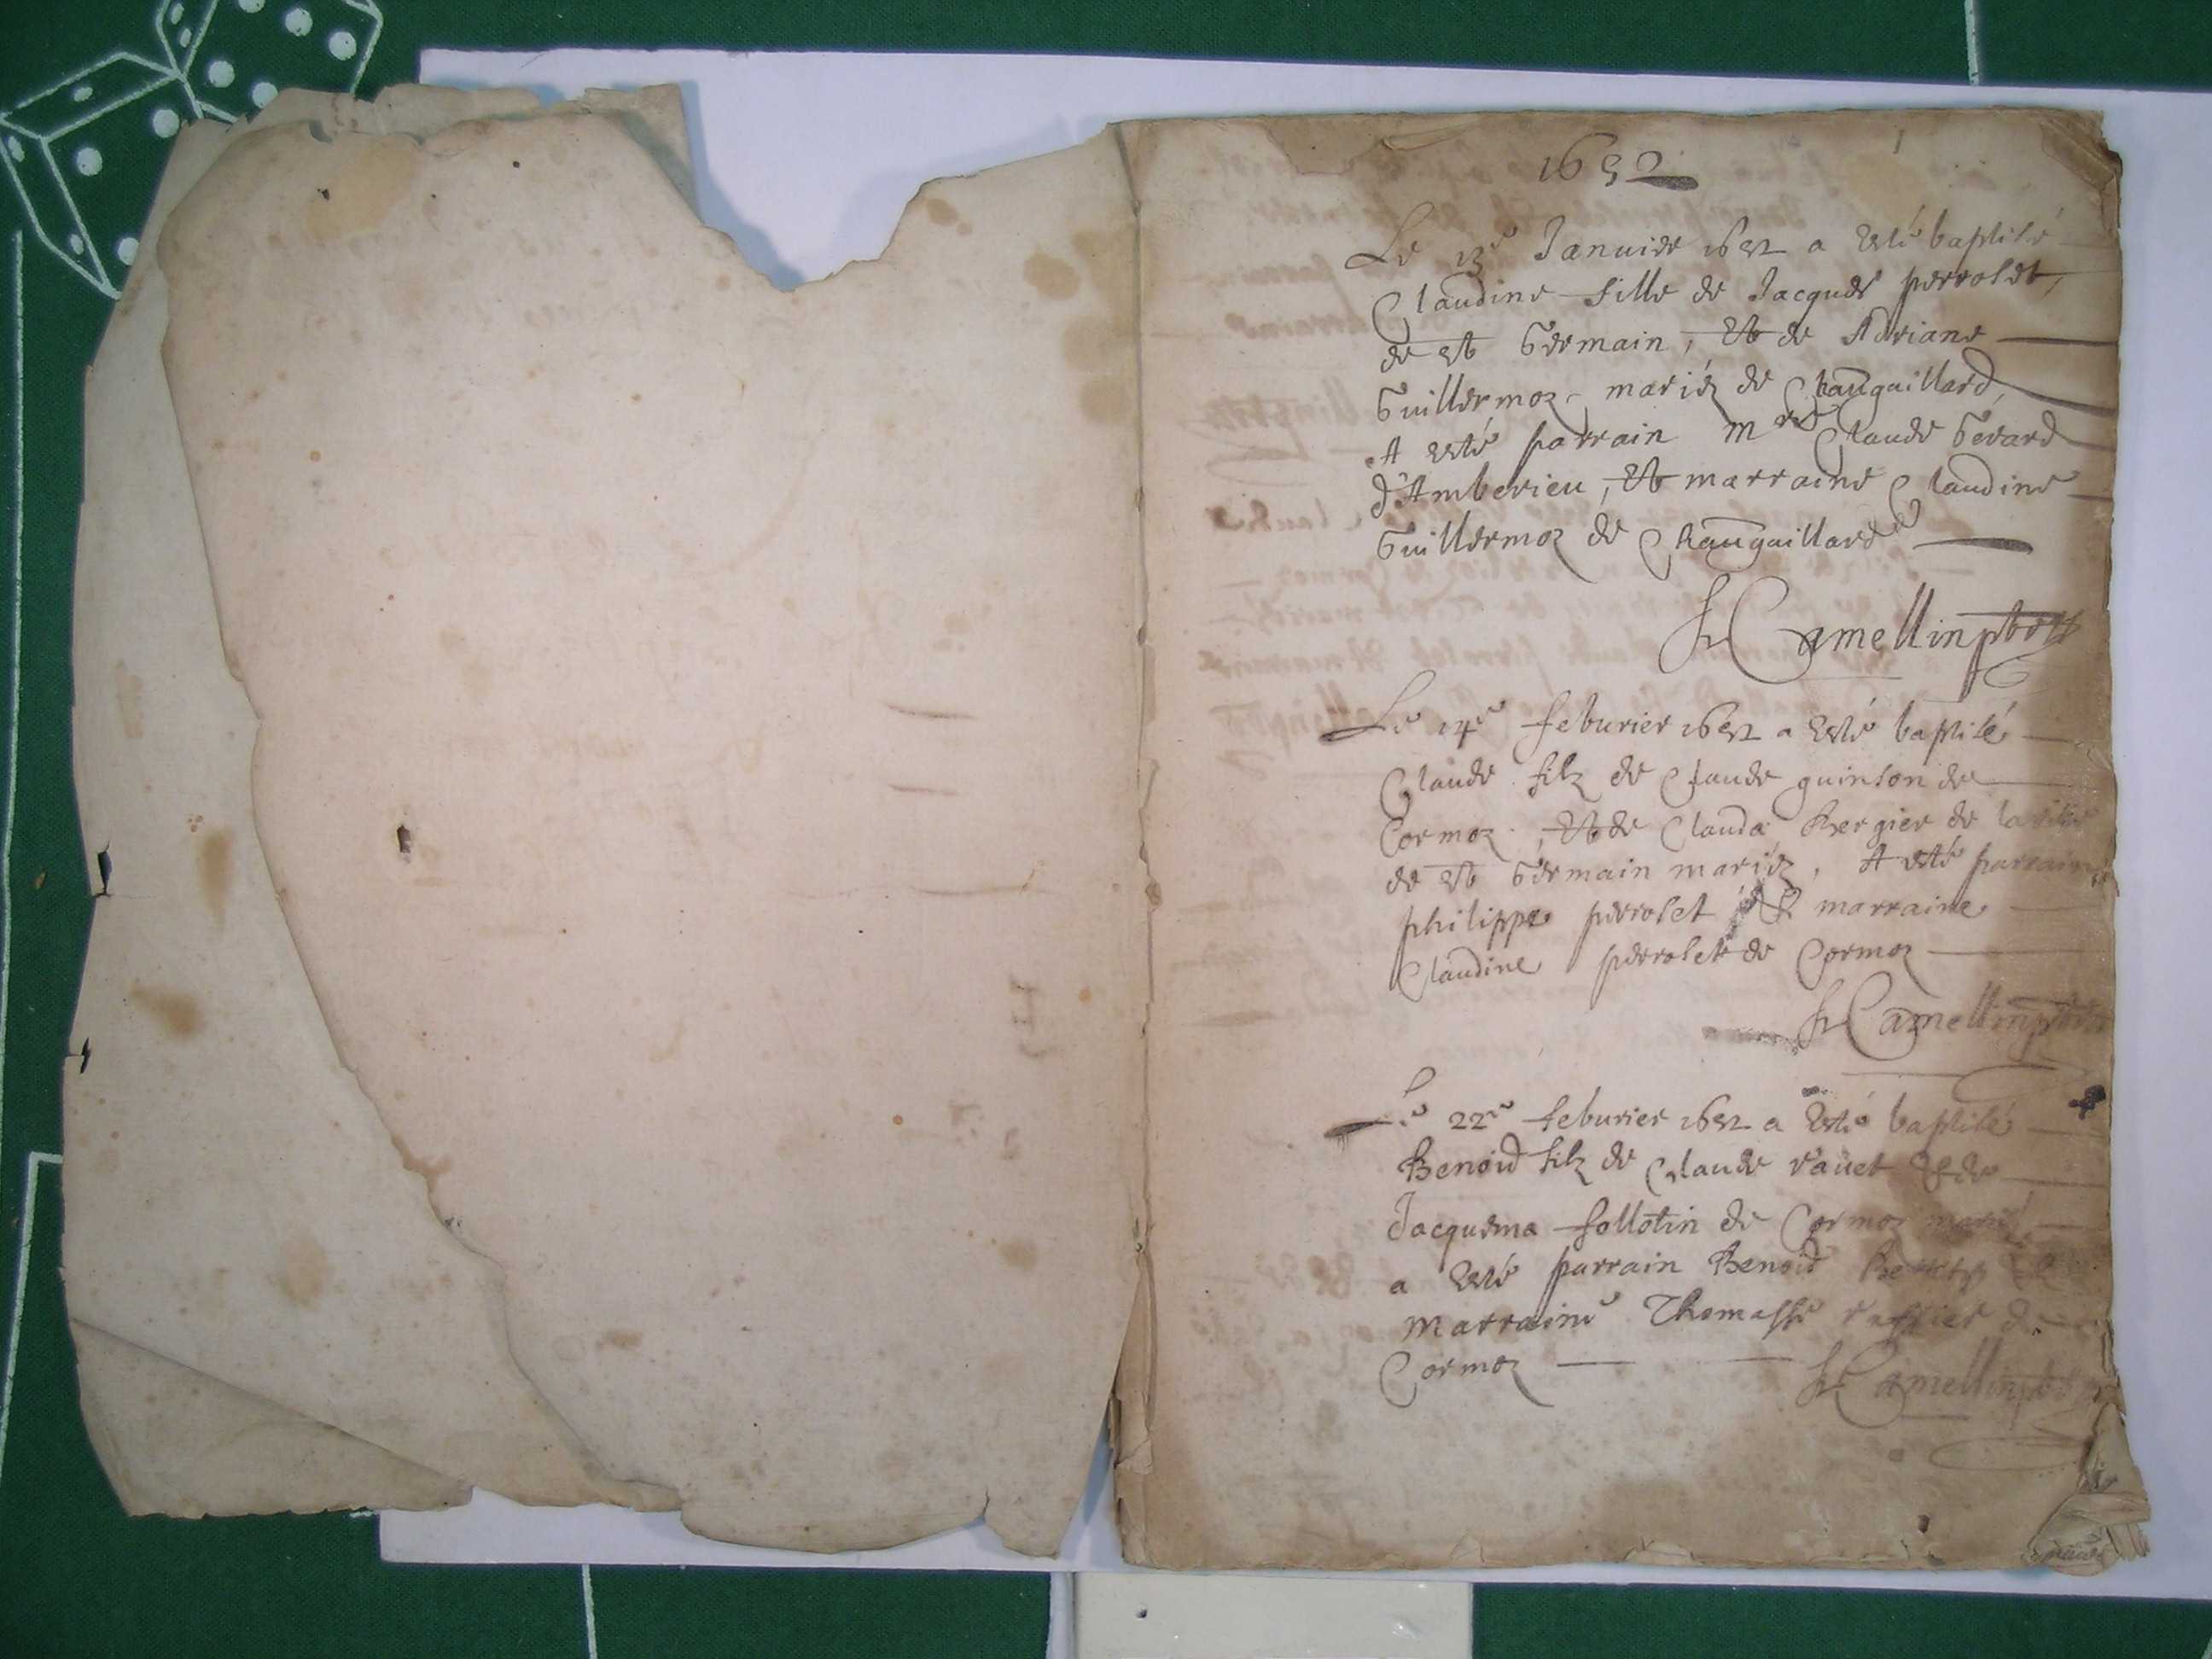 1652
Le 13e Januier 1652 a esté baptisé
Claudine fille de Jacques perroset,
de st Germain, et de Adriane
Guillermoz mariéz de Chaugaillard,
A esté parrain mre Claude Gerard
d'Amberieu, et marraine Claudine
Guillermoz de Chaugaillard
Camellin pbre
Le 14e feburier 1652 a esté baptisé
Claude filz de Claude guinson de
Cormoz, et de Clauda Bergier de
de st Germain mariéz, A esté parrain
philippe perroset et marraine
Claudine perroset de Cormoz
Camellin pbre
Le 22e feburier 1652 a esté baptisé
Benoid filz de Claude rauet et de
Jacquema follotin de Cormoz mariéz
a esté parrain Benoid et
marraine Thomasse de
Cormoz Camellin pbre